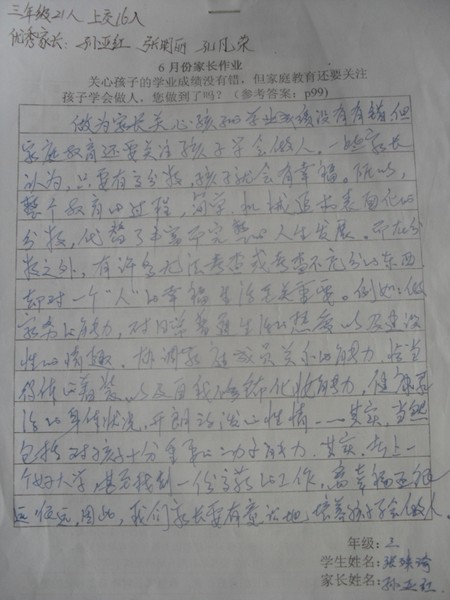 三年级21人 上交16人
优秀家长: 孙亚红 张朋丽 孔凡荣
6 月份家长作业
关心孩子的学业成绩没有错，但家庭教育还要关注
孩子学会做人，您做到了吗？（参考答案：p99）
做为家长关心孩子的学业成绩没有有错，但
家庭教育还要关注孩子学会做人。一些家长
认为，只要有高分数，孩子就会有幸福。所以，
整个教育的过程，简单、机械追求表面化的
分数，代替了丰富而完整的人生发展。而在分
数之外，有许多无法考查或考查不充分的东西，
却对一个“人”的幸福生活至关重要。例如：做
家务的能力，对日常普通生活的热爱以及建设
性的情趣，协调家庭成员关系的能力，恰当
得体的着装，以及自我 化妆能力，健康
活的身体状况，开朗活泼的性情……其实，当然
包括对孩子十分重要的动手能力。其实，考上一
个好大学，甚至找到一份高薪的工作，离幸福还很
远很远，因此，我们家长要有意识地培养孩子学会做人。
年级：三
学生姓名：张
家长姓名：孙亚红